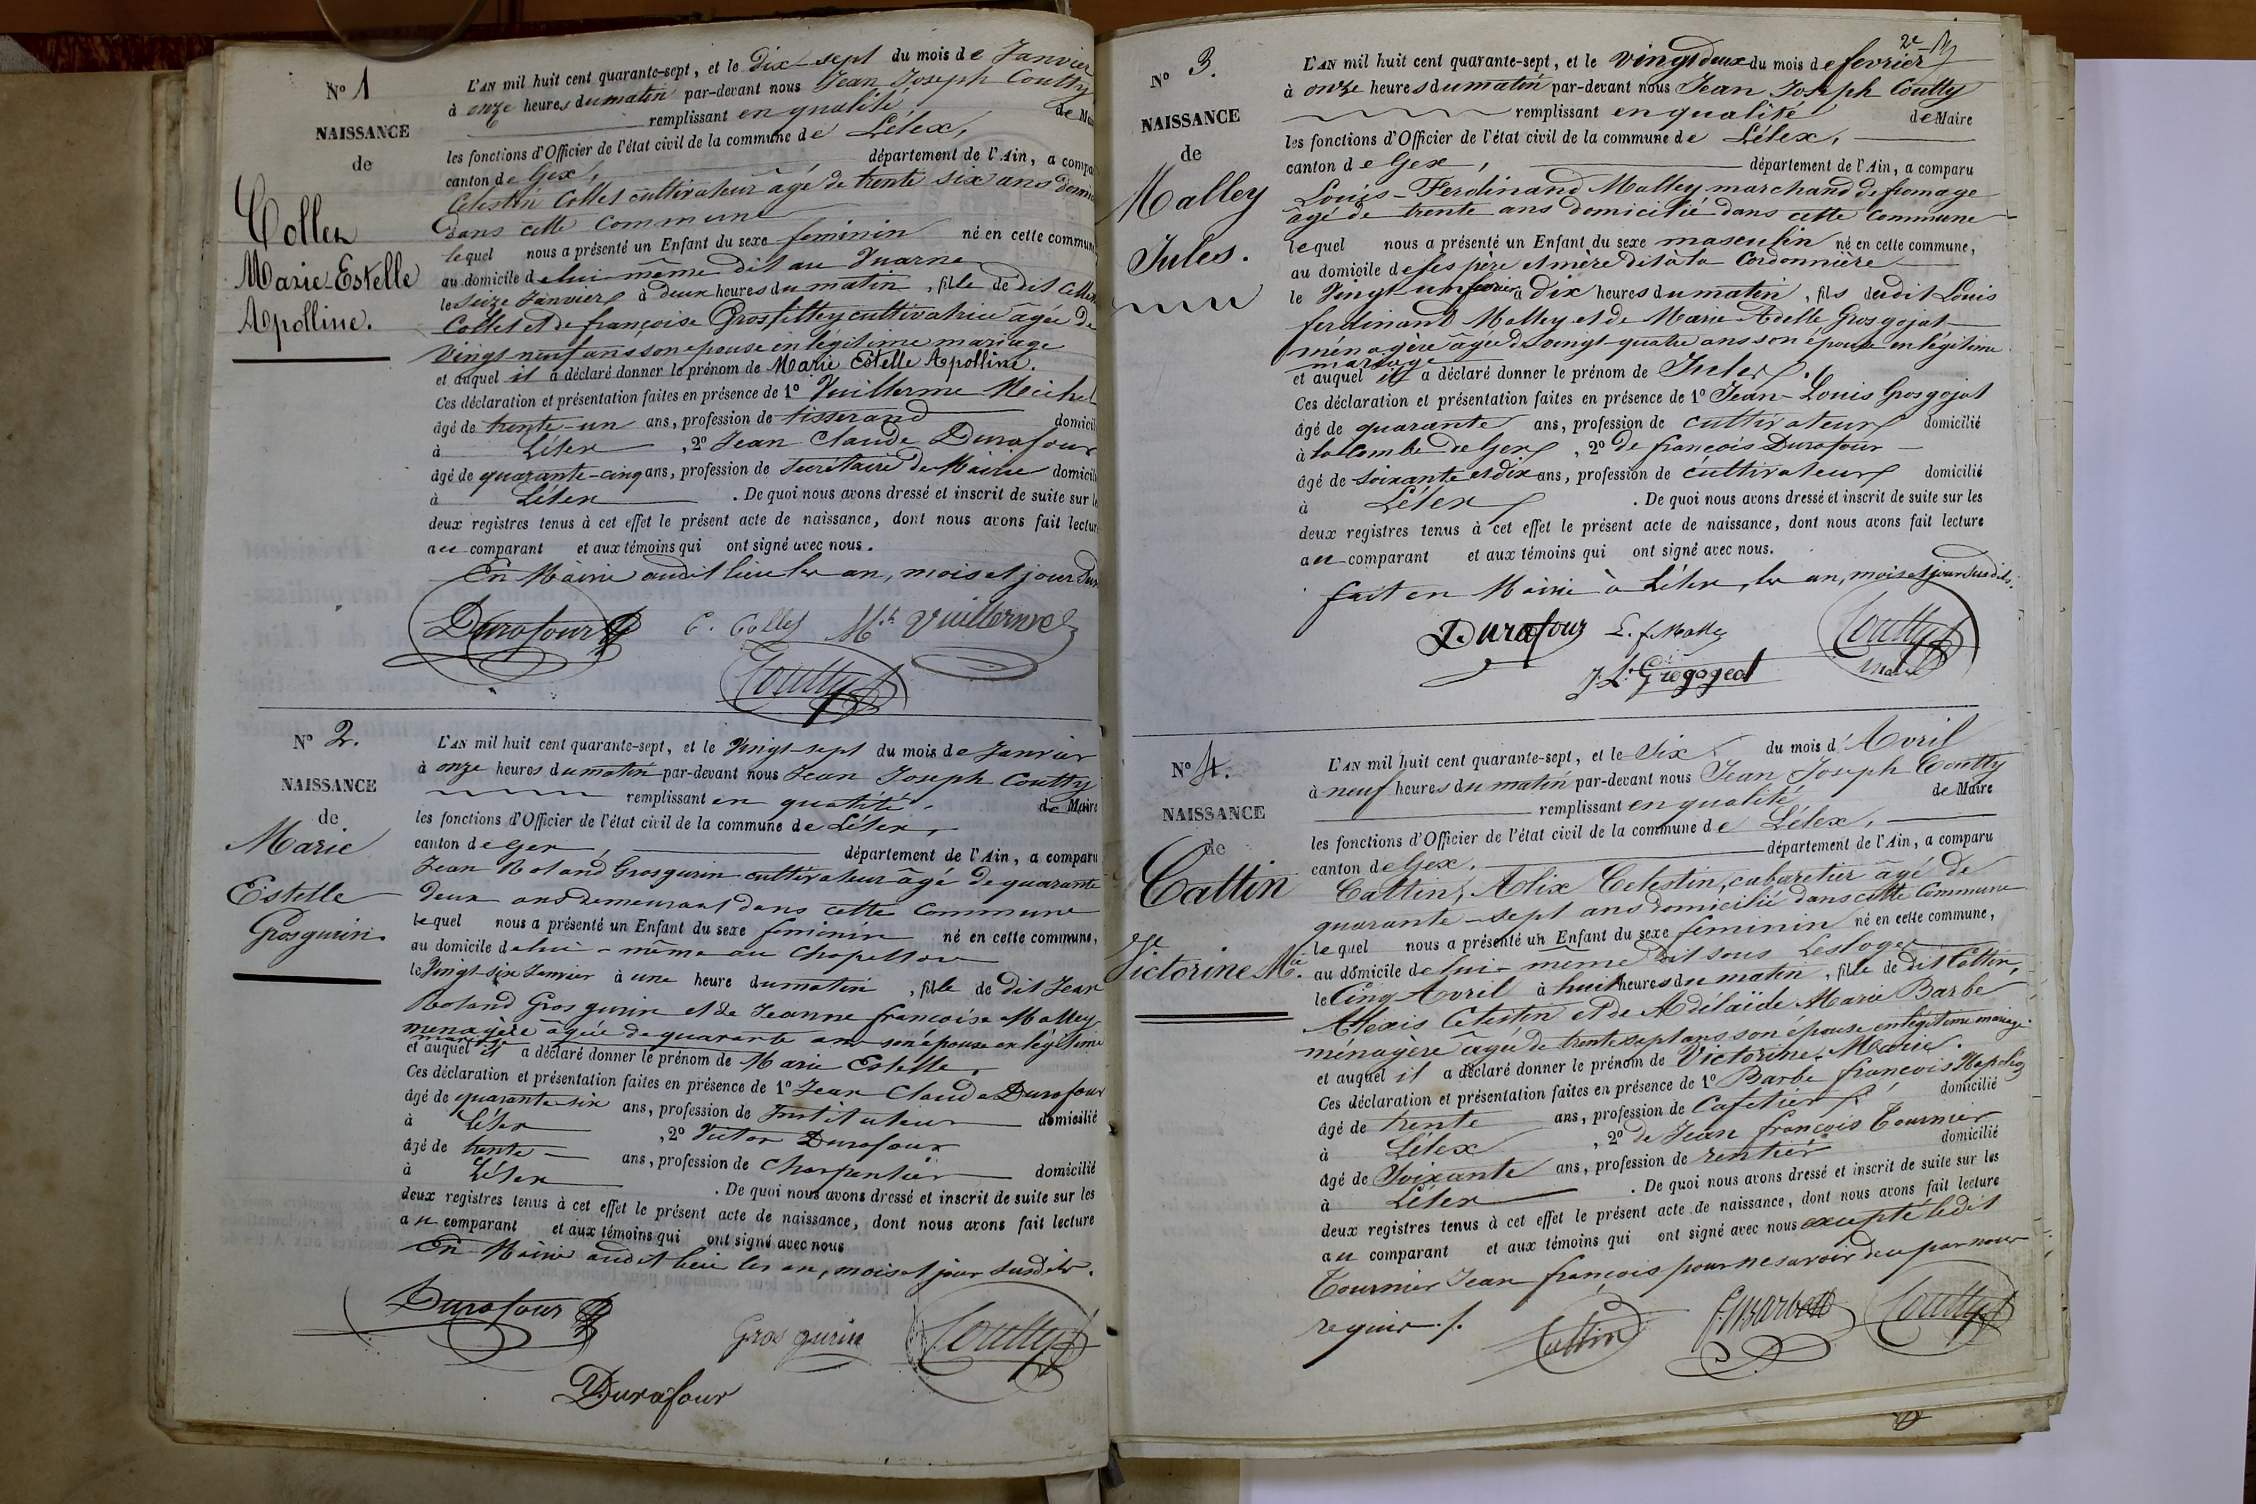 Nº 1
NAISSANCE
de
Collet
Marie Estelle
Apolline.
L'AN mil huit cent quarante-sept, et le dix-sept du mois de Janvier
à onze heures du matin par-devant nous Jean Joseph Coutty
remplissant en qualité de
les fonctions d'Officier de l'état civil de la commune de Lélex,
canton de Gex, département de l'Ain, a
Celestin Collet cultivateur âgé de trente six ans
dans cette Commune
lequel nous a présenté un Enfant du sexe feminin né en cette commune
au domicile de lui-même dit au
le seize Janvier à deux heures du matin, fille de dit
Collet et de françoise Grosfilley cultivatrice âgée de
vingt-neuf ans son épouse en légitime mariage
et auquel il a déclaré donner le prénom de Marie Estelle Apolline.
Ces déclaration et présentation faites en présence de 1º Vuillerme Michel
âgé de trente-un ans, profession de tisserand
à Lélex, 2º Jean Claude Durafour
âgé de quarante-cinq ans, profession de Secrétaire de Mairie
à Lélex. De quoi nous avons dressé et inscrit de suite sur
deux registres tenus à cet effet le présent acte de naissance, dont nous avons fait lecture
au comparant et aux témoins qui ont signé avec nous.
En Mairie audit lieu les an, mois et jour
Durafour C. Collet Mel Vuillerme
Coutty
Nº 2.
NAISSANCE
de
Marie
Estelle
Grosgurin
L'AN mil huit cent quarante-sept, et le Vingt-sept du mois de Janvier
à onze heures du matin par-devant nous Jean Joseph Coutty
remplissant en qualité de Maire
les fonctions d'Officier de l'état civil de la commune de Lélex,
canton de Gex, département de l'Ain, a comparu
Jean Roland Grosgurin cultivateur âgé de quarante
deux ans demeurant dans cette Commune
lequel nous a présenté un Enfant du sexe feminin né en cette commune,
au domicile de lui-même au Chapellon
le Vingt-six Janvier à une heure du matin, fille de dit Jean
Roland Grosgurin et de Jeanne françoise Malley
menagère âgée de quarante ans son épouse en légitime
mariage
et auquel il a déclaré donner le prénom de Marie Estelle.
Ces déclaration et présentation faites en présence de 1º Jean Claude Durafour
âgé de quarante-six ans, profession de Instituteur domicilié
à Lélex, 2º Victor Durafour
âgé de trente ans, profession de Charpentier domicilié
à Lélex. De quoi nous avons dressé et inscrit de suite sur les
deux registres tenus à cet effet le présent acte de naissance, dont nous avons fait lecture
au comparant et aux témoins qui ont signé avec nous
En Mairie audit lieu les an, mois et jour susdits.
Durafour Grosgurin Coutty
Durafour
2e
Nº 3.
NAISSANCE
de
Malley
Jules.
L'AN mil huit cent quarante-sept, et le vingt deux du mois de fevrier
à onze heures du matin par-devant nous Jean Joseph Coutty
remplissant en qualité de Maire
les fonctions d'Officier de l'état civil de la commune de Lélex,
canton de Gex, département de l'Ain, a comparu
Louis-Ferdinand Malley marchand de fromage
âgé de trente ans domicilié dans cette Commune
lequel nous a présenté un Enfant du sexe masculin né en cette commune,
au domicile de ses père et mère dit à la Cordonnière
le Vingt-un fevrier à dix heures du matin, fils dudit Louis
ferdinand Malley et de Marie Adelle Grosgojat
ménagère âgée de vingt-quatre ans son épouse en légitime
mariage
et auquel il a déclaré donner le prénom de Jules.
Ces déclaration et présentation faites en présence de 1º Jean-Louis Grosgojat
âgé de quarante ans, profession de cultivateur domicilié
à la Combe de Gex, 2º de françois Durafour
âgé de soixante et dix ans, profession de cultivateur domicilié
à Lélex. De quoi nous avons dressé et inscrit de suite sur les
deux registres tenus à cet effet le présent acte de naissance, dont nous avons fait lecture
au comparant et aux témoins qui ont signé avec nous.
fait en Mairie à Lélex, les an, mois et jour susdits.
Durafour L. f. Malley Coutty
J. L. Grogogeat maire
Nº 4.
NAISSANCE
de
Cattin
Victorine Mie.
L'AN mil huit cent quarante-sept, et le Six du mois d'Avril
à neuf heures du matin par-devant nous Jean Joseph Coutty
remplissant en qualité de Maire
les fonctions d'Officier de l'état civil de la commune de Lélex,
canton de Gex, département de l'Ain, a comparu
Cattin, Alix Celestin, cabaretier âgé de
quarante-sept ans domicilié dans cette Commune
lequel nous a présenté un Enfant du sexe feminin né en cette commune,
au domicile de lui-même dit sous Lesloges
le Cinq Avril à huit heures du matin, fille de dit Cattin,
Alexis Célestin et de Adélaïde Marie Barbe
ménagère âgée de trente sept ans son épouse en légitime mariage.
et auquel il a déclaré donner le prénom de Victorine Marie.
Ces déclaration et présentation faites en présence de 1º Barbe françois Napoléon
âgé de trente ans, profession de Cafetier domicilié
à Lélex, 2º de Jean françois Tournier
âgé de Soixante ans, profession de rentier domicilié
à Lélex. De quoi nous avons dressé et inscrit de suite sur les
deux registres tenus à cet effet le présent acte de naissance, dont nous avons fait lecture
au comparant et aux témoins qui ont signé avec nous excepté ledit
Tournier Jean françois pour ne savoir de ce par nous
requis./.
Cattin Coutty